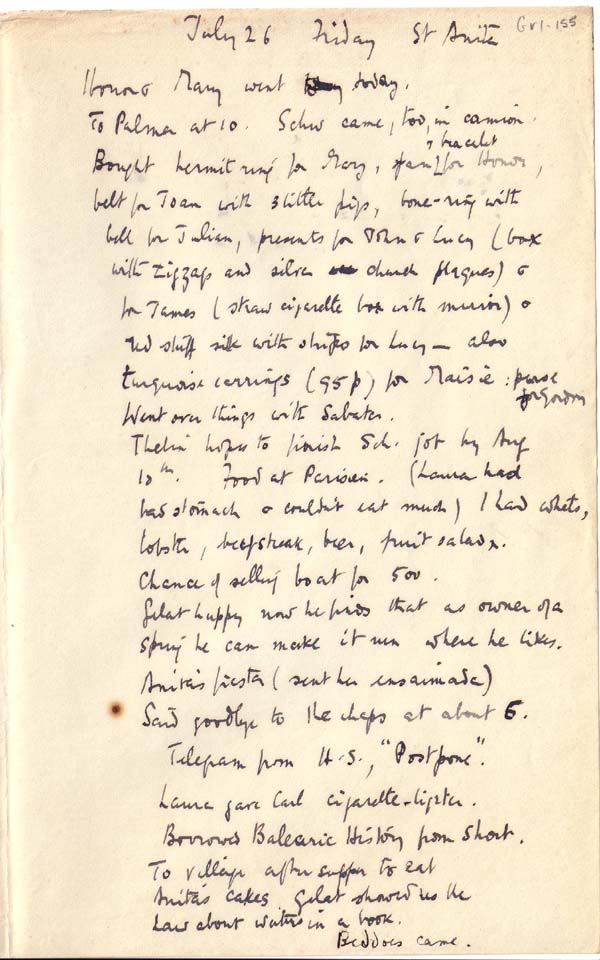 July 26 Friday St Anita Gr1-155
Honor & Mary went today.
To Palma at 10. Schw came, too, in camion.
Bought hermit ring for Mary, fan & bracelet for Honor,
belt for Joan with 3 little pigs, bone-ring with
bell for Julian, presents for John & Lucy (box
with zigzags and silver church plaques) &
for James (straw cigarette box with mirror) &
red stuff silk with stripes for Lucy — also
turquoise earrings (95 p) for Maisie: purse
for Gordon
Went over things with Sabater.
Thelin hopes to finish Sch. job by Aug
10th. Food at Parisien. (Laura had
bad stomach & couldn't eat much) I had
lobster, beefsteak, beer, fruit salad.
Chance of selling boat for 500.
Gelat happy now he finds that as owner of a
spring he can make it run where he likes.
Anita's fiesta (sent her ensaimada)
Said goodbye to the chaps at about 6.
Telegram from H.S., "Postpone".
Laura gave Carl cigarette-lighter.
Borrowed Balearic History from Short.
To village after supper to eat
Anita's cakes. Gelat showed us the
law about waters in a book.
Beddoes came.